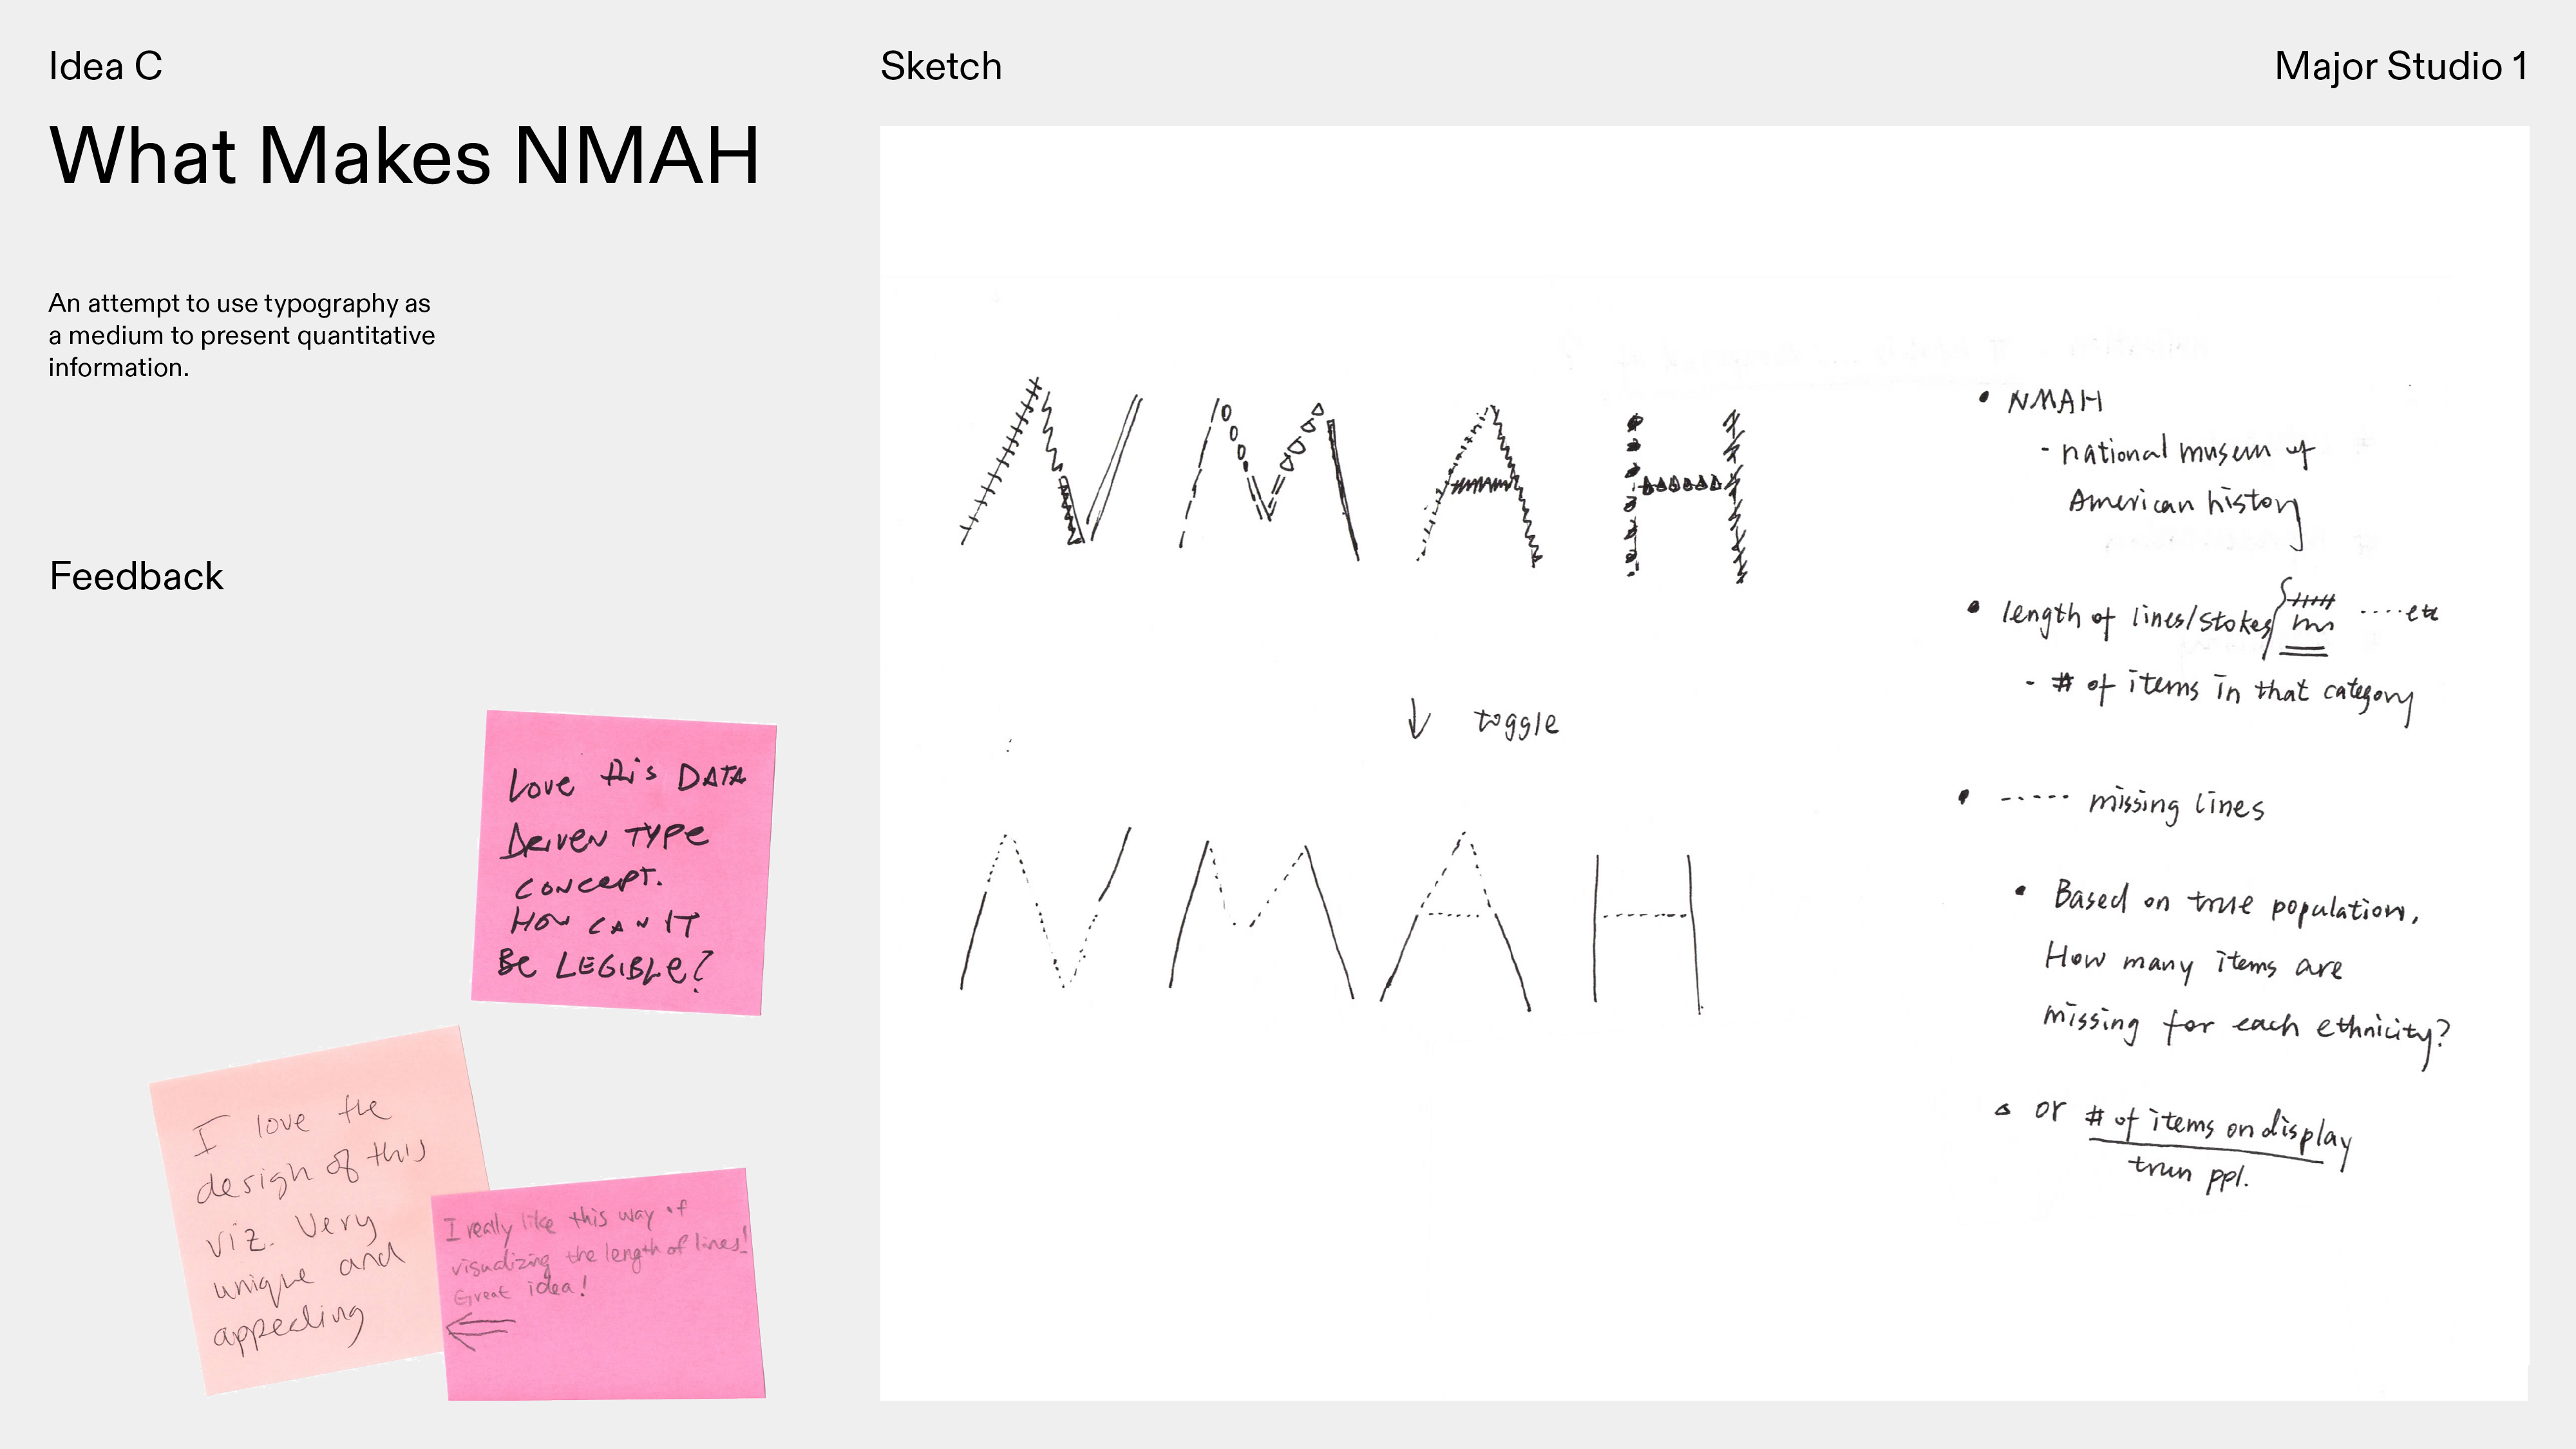 Idea C
What Makes NMAH
An attempt to use typography as
a medium to present quantitative
information.
Feedback
Love this DATA
DRIVEN TYPE
CONCEPT.
HOW CAN IT
BE LEGIBLE?
I love the
design of this
viz. Very
unique and
appealing
I really like this way of
visualizing the length of lines!
Great idea!
Sketch
Major Studio 1
NMAH
↓ toggle
NMAH
• NMAH
- national museum of
American history
• length of lines/stokes ....etc
- # of items in that category
• ----- missing lines
• Based on true population,
How many items are
missing for each ethnicity?
or # of items on display
ppl.